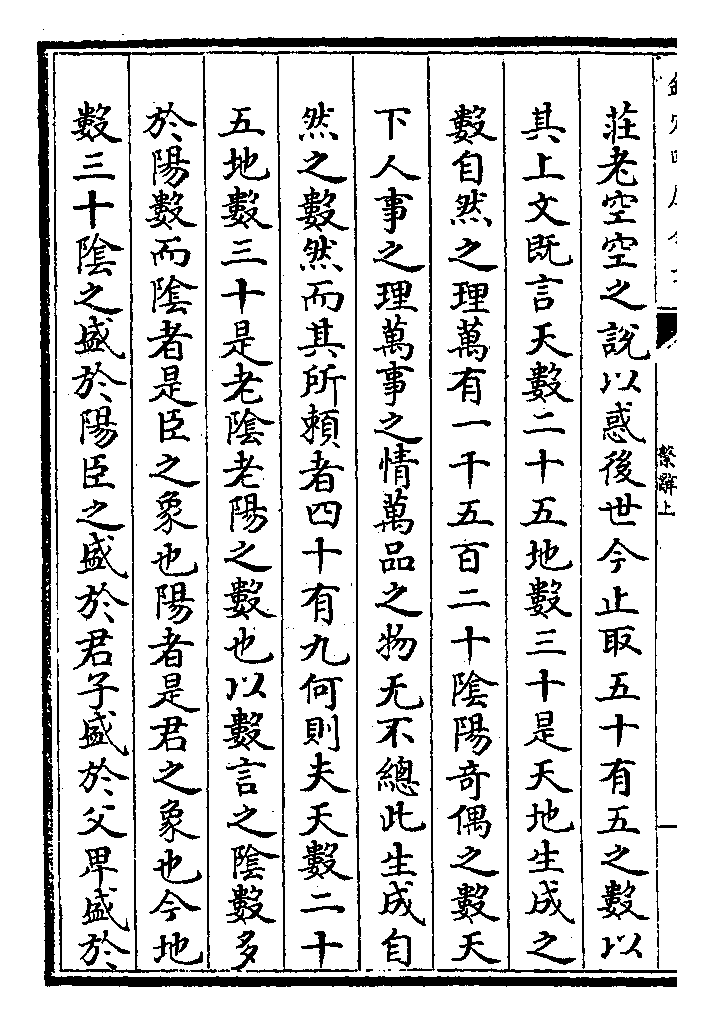 莊老空空之說以惑後世今止取五十有五之數以
其上文既言天數二十五地數三十是天地生成之
數自然之理萬有一千五百二十陰陽奇偶之數天
下人事之理萬事之情萬品之物无不總此生成自
然之數然而其所賴者四十有九何則夫天數二十
五地數三十是老陰老陽之數也以數言之陰數多
於陽數而陰者是臣之象也陽者是君之象也今地
數三十陰之盛於陽臣之盛於君子盛於父卑盛於
繫辭上